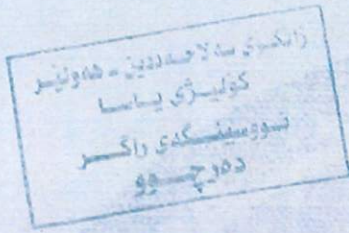 زانکۆی سەلاحەددین - هەولێر
کۆلیژی یاسا
نووسینگەی راگر
دەرچوو